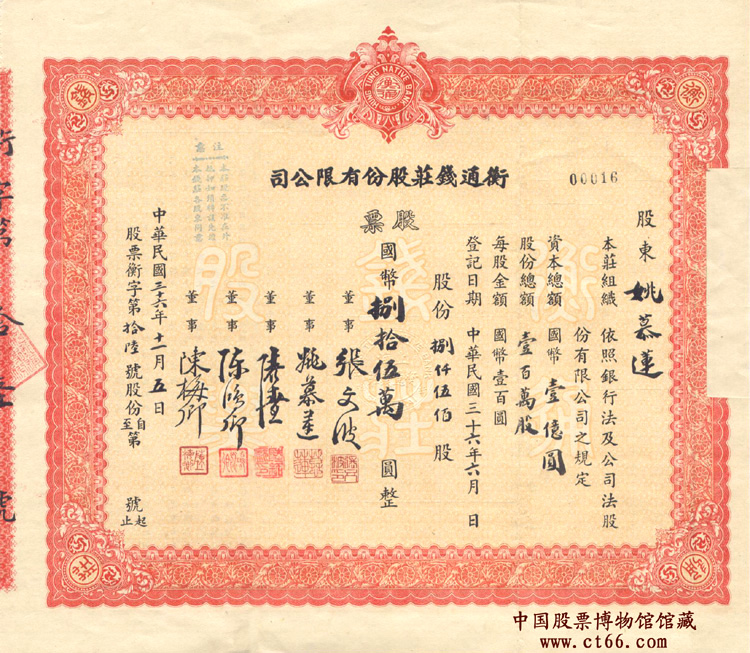 HENG TUNG NATIVE BANK
衡通錢莊股份有限公司
00016
股票
股東 姚慕蓮
本莊組織 依照銀行法及公司法股
份有限公司之規定
資本總額 國幣壹億圓
股份總額 壹百萬股
每股金額 國幣壹百圓
登記日期 中華民國三十六年六月 日
股份 捌仟伍佰 股
國幣 捌拾伍萬 圓整
董事 張文波
董事 姚慕蓮
董事
董事
董事 陳梅卿
中華民國三十六年十一月五日
股票衡字第拾陸號股份自第 號起
至 止
注意
衡字第 號
中国股票博物馆馆藏
www.ct66.com